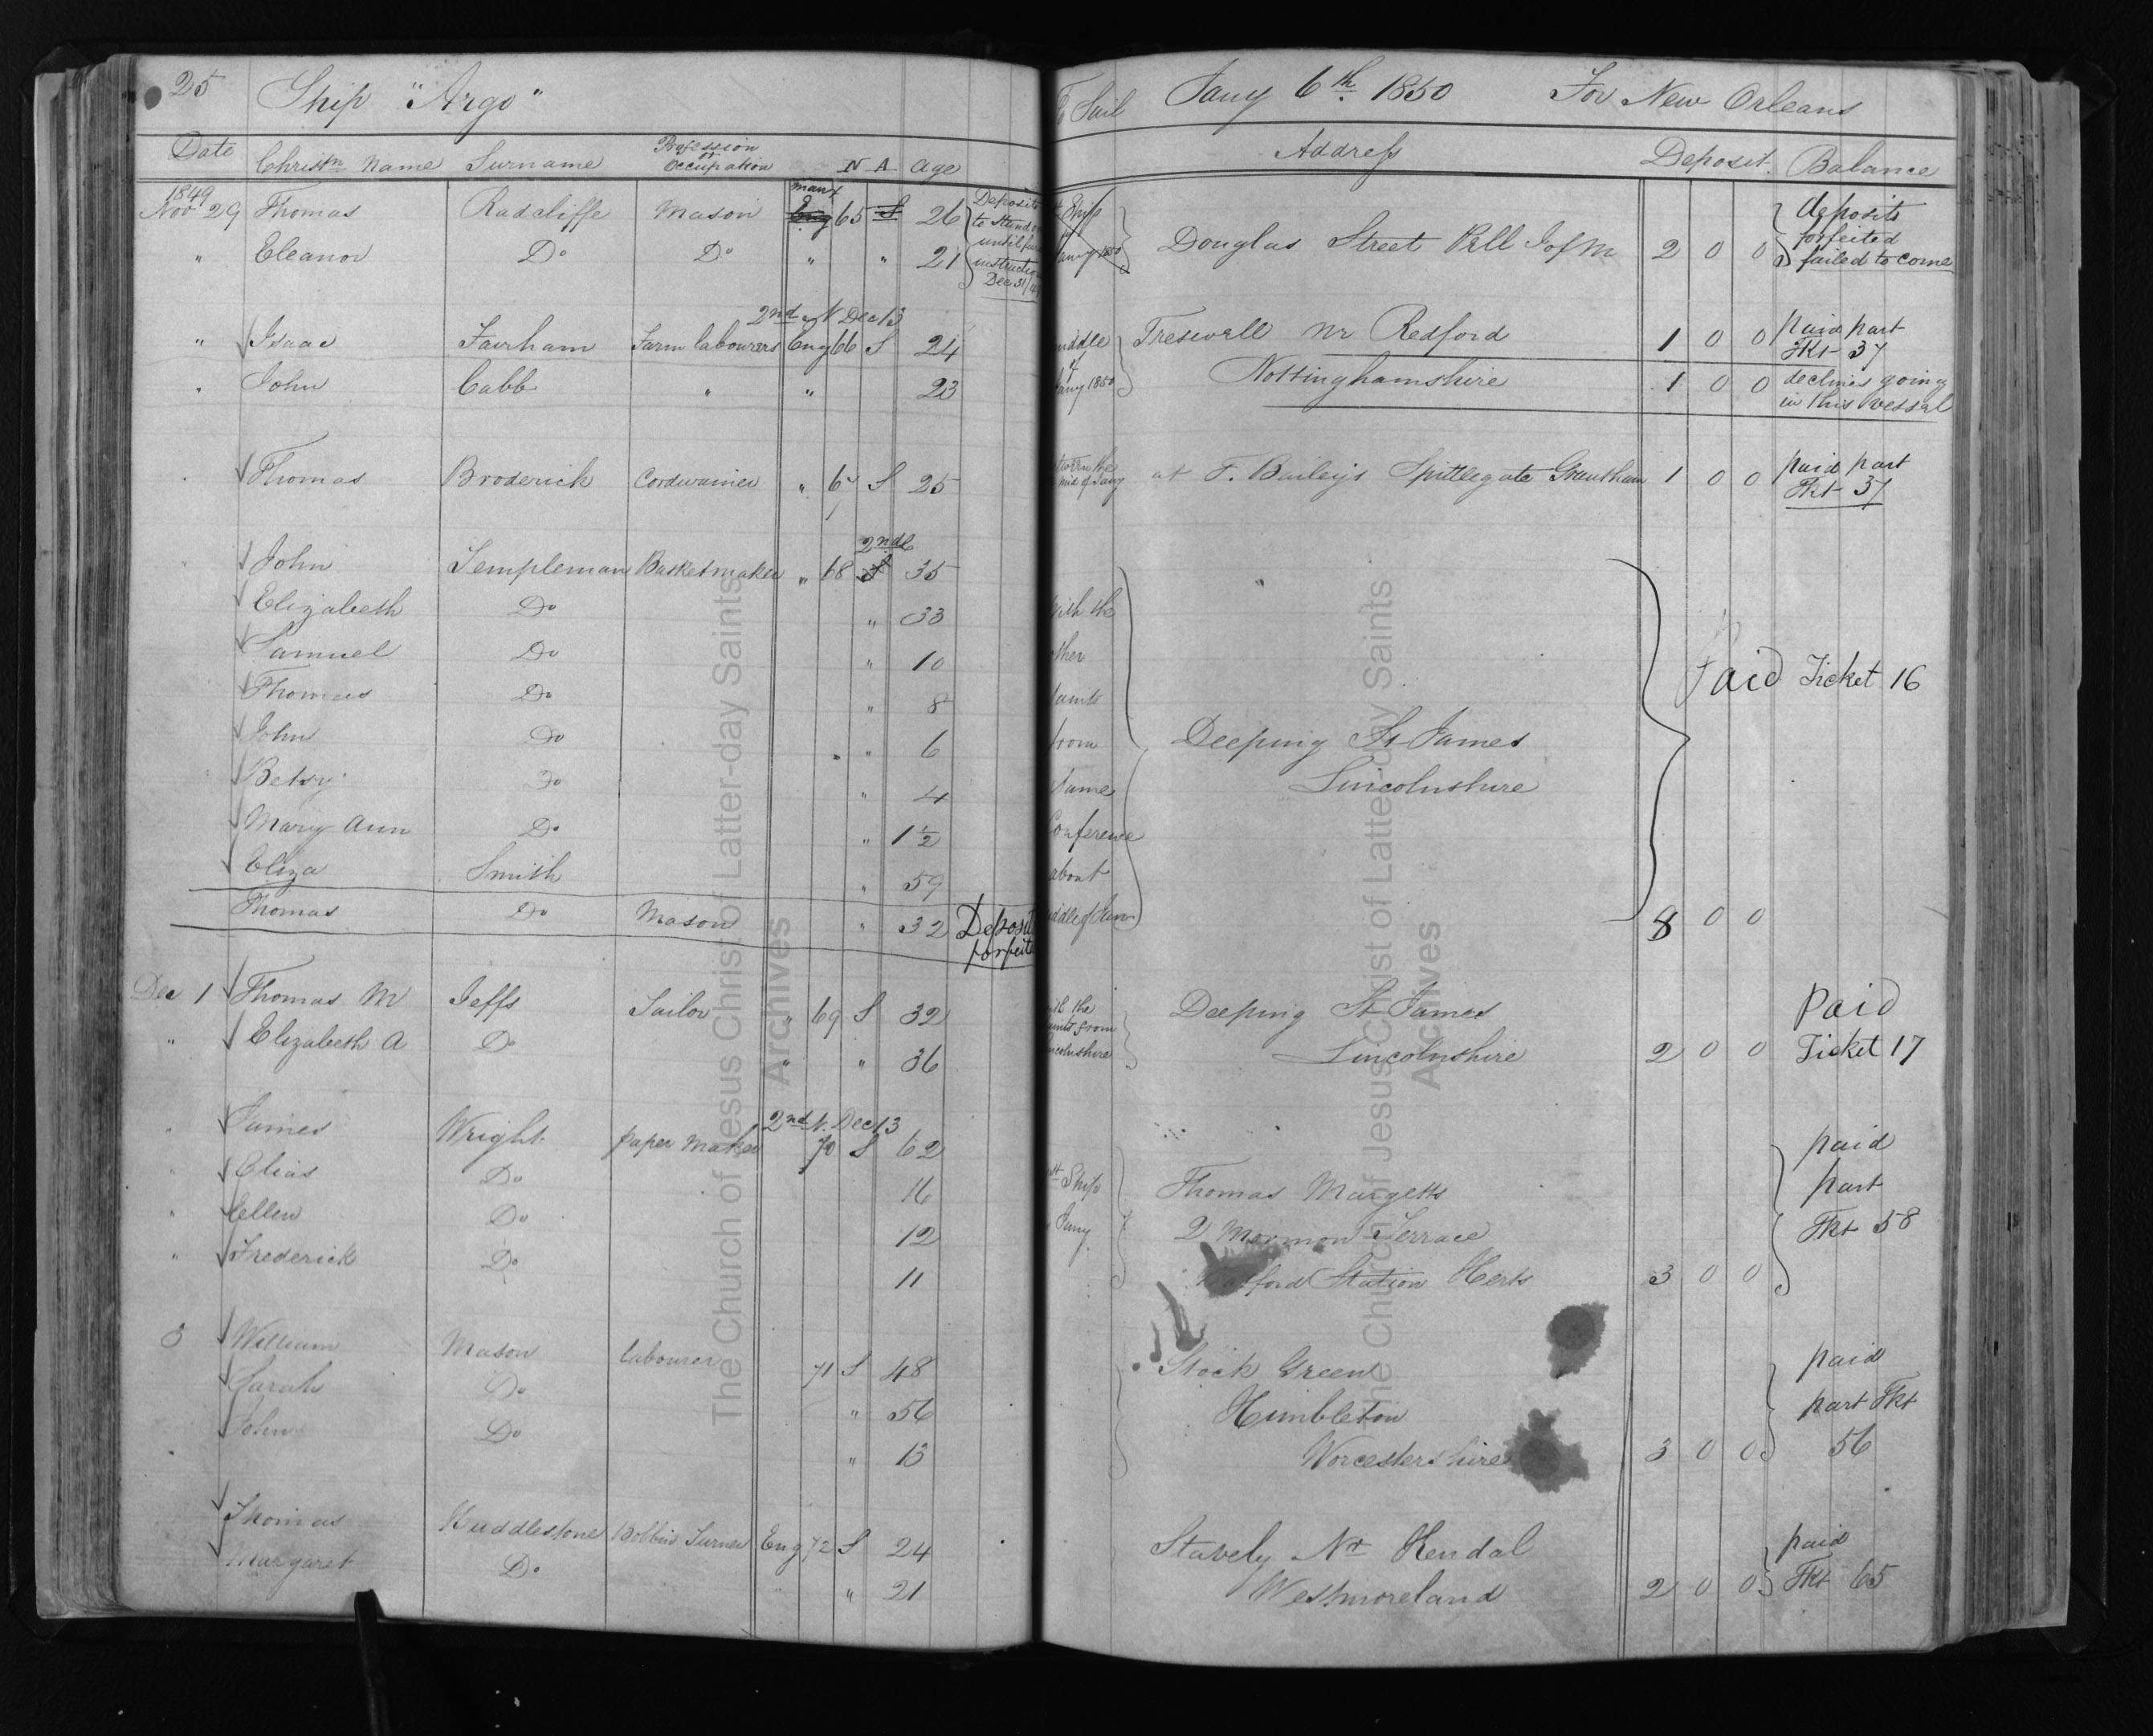 25 Ship "Argo" To Sail Jany 6th 1850 For New Orleans
Date Christn Name Surname Profession or Occupation N A Age Address Deposit Balance
1849
Manx
Nov 29 Thomas Radcliffe Mason Eng 65 S 26
" Eleanor Do Do " " 21
Deposits
to Stand
until
Dec 31/49
Ship
Jany 1850
Douglas Street Peel I of M 2 0 0
deposits
forfeited
failed to come
2nd N Dec 13
" Isaac Fairham Farm labourers Eng 66 S 24 middle Treswell nr Redford 1 0 0 paid part
Tkt 37
" John Cabb " " 23 Jany 1850 Nottinghamshire 1 0 0 declines going
in this vessel
Thomas Broderick Cordwainer " 67 S 25 at F. Bailey's Spittlegate Grantham 1 0 0 paid part
Tkt 37
2nd C
John Templeman Basketmaker " 68 S 35
Elizabeth Do " 33 with the
Samuel Do " 10 other Paid Ticket 16
Thomas Do " 8 Saints
John Do " 6 from Deeping St James
Betsy Do " 4 same Lincolnshire
Mary Ann Do " 1½ Conference
Eliza Smith " 59 about
Thomas Do Mason " 32 Deposit
forfeited
middle of Jany 8 0 0
Dec 1 Thomas M Jeffs Tailor " 69 S 32 with the Deeping St James Paid
Saints from
" Elizabeth A Do " " 36 Lincolnshire Lincolnshire 2 0 0 Ticket 17
2nd N. Dec 13
" James Wright paper maker 70 S 62 paid
" Elias Do 16 Ship Thomas Margetts part
" Ellen Do 12 Jany 2 Mormon Terrace Tkt 58
" Frederick Do 11 Watford Station Herts 3 0 0
3 William Mason labourer 71 S 48 Stock Green paid
Sarah Do " 56 Himbleton part Tkt
John Do " 13 Worcestershire 3 0 0 56
Thomas Huddlestone Bobbin Turner Eng 72 S 24 Stavely Nr Kendal paid
Margaret Do " " 21 Westmoreland 2 0 0 Tkt 65
The Church of Jesus Christ of Latter-day Saints
Archives
The Church of Jesus Christ of Latter-day Saints
Archives